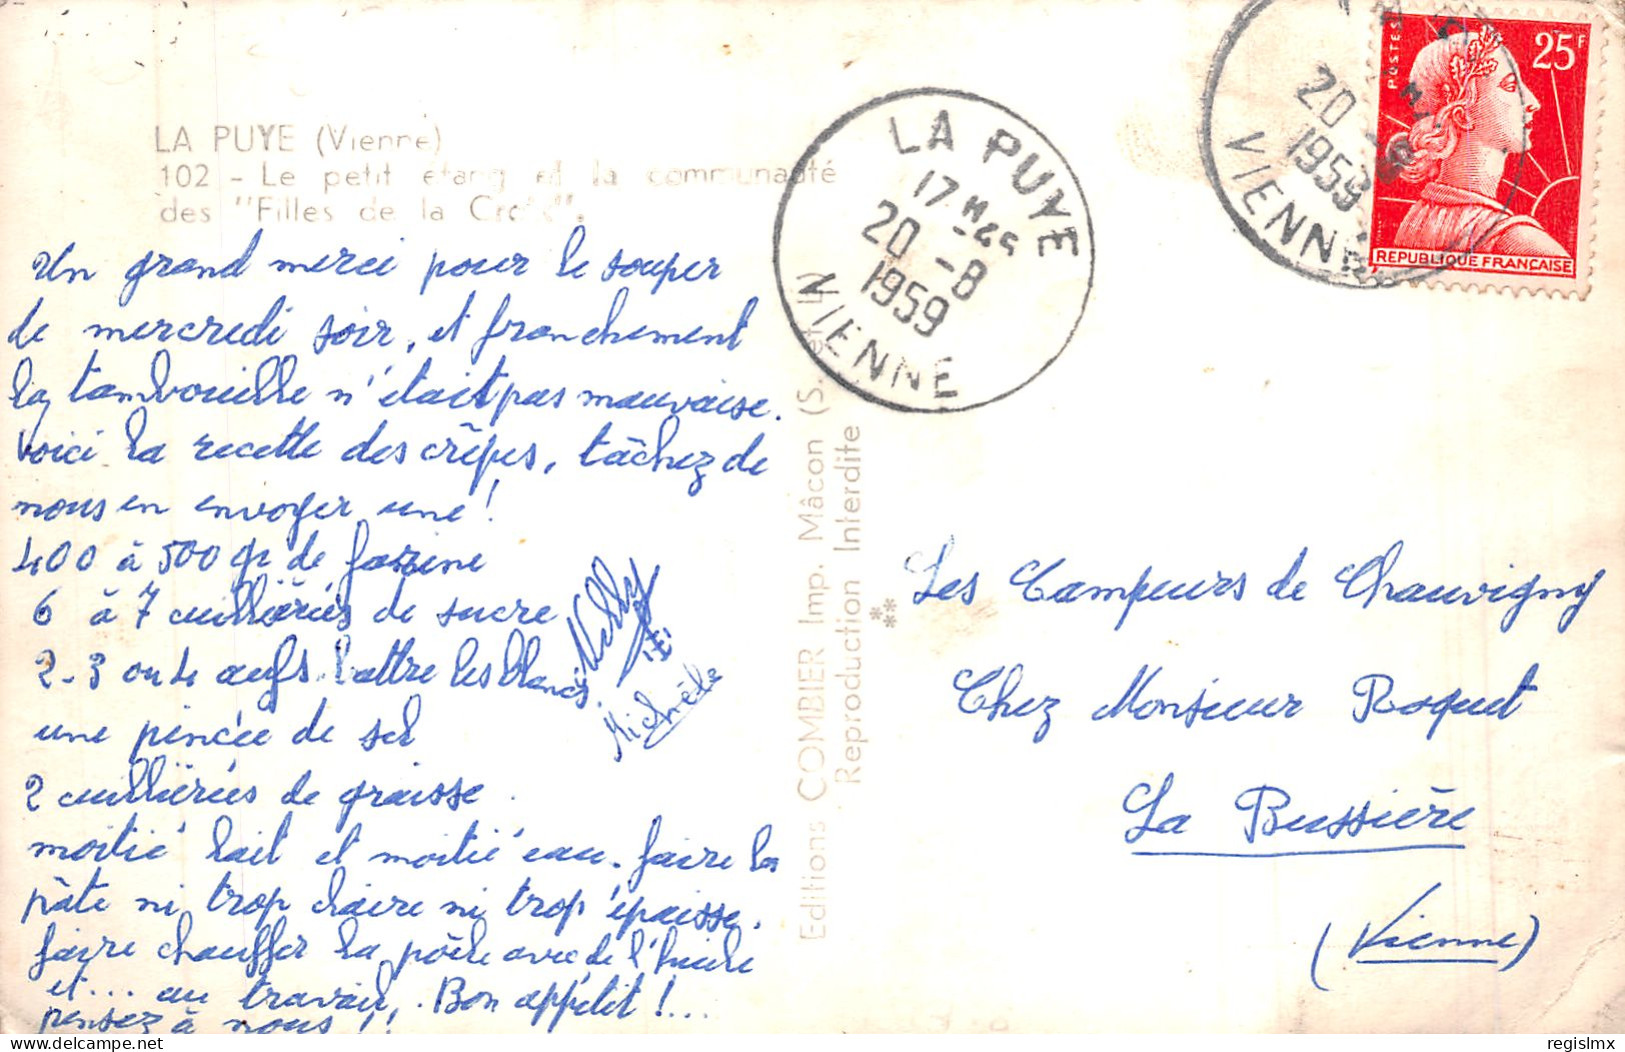 LA PUYE (Vienne)
102 - Le petit étang et la communauté
des "Filles de la Croix".
Un grand merci pour le souper
de mercredi soir, et franchement
la tambouille n'était pas mauvaise.
Voici la recette des crêpes, tâchez de
nous en envoyer une!
400 à 500 gr de farine
6 à 7 cuillièrées de sucre
2-3 ou 4 œufs battre les blancs.
une pincée de sel
2 cuillièrées de graisse.
moitié lait et moitié eau. faire la
pâte ni trop claire ni trop épaisse.
faire chauffer la poêle avec de l'huile
et... au travail,. Bon appétit!...
pensez à nous!!
Nelly
et
Michèle
Editions COMBIER Imp. Mâcon (S. et L.)
Reproduction Interdite
LA PUYE
17 H 45
20 -8
1959
VIENNE
20 -8
1959
VIENNE
POSTES
25F
REPUBLIQUE FRANÇAISE
Les Campeurs de Chauvigny
Chez Monsieur Roquet
La Bussière
(Vienne)
delcampe.net
regislmx